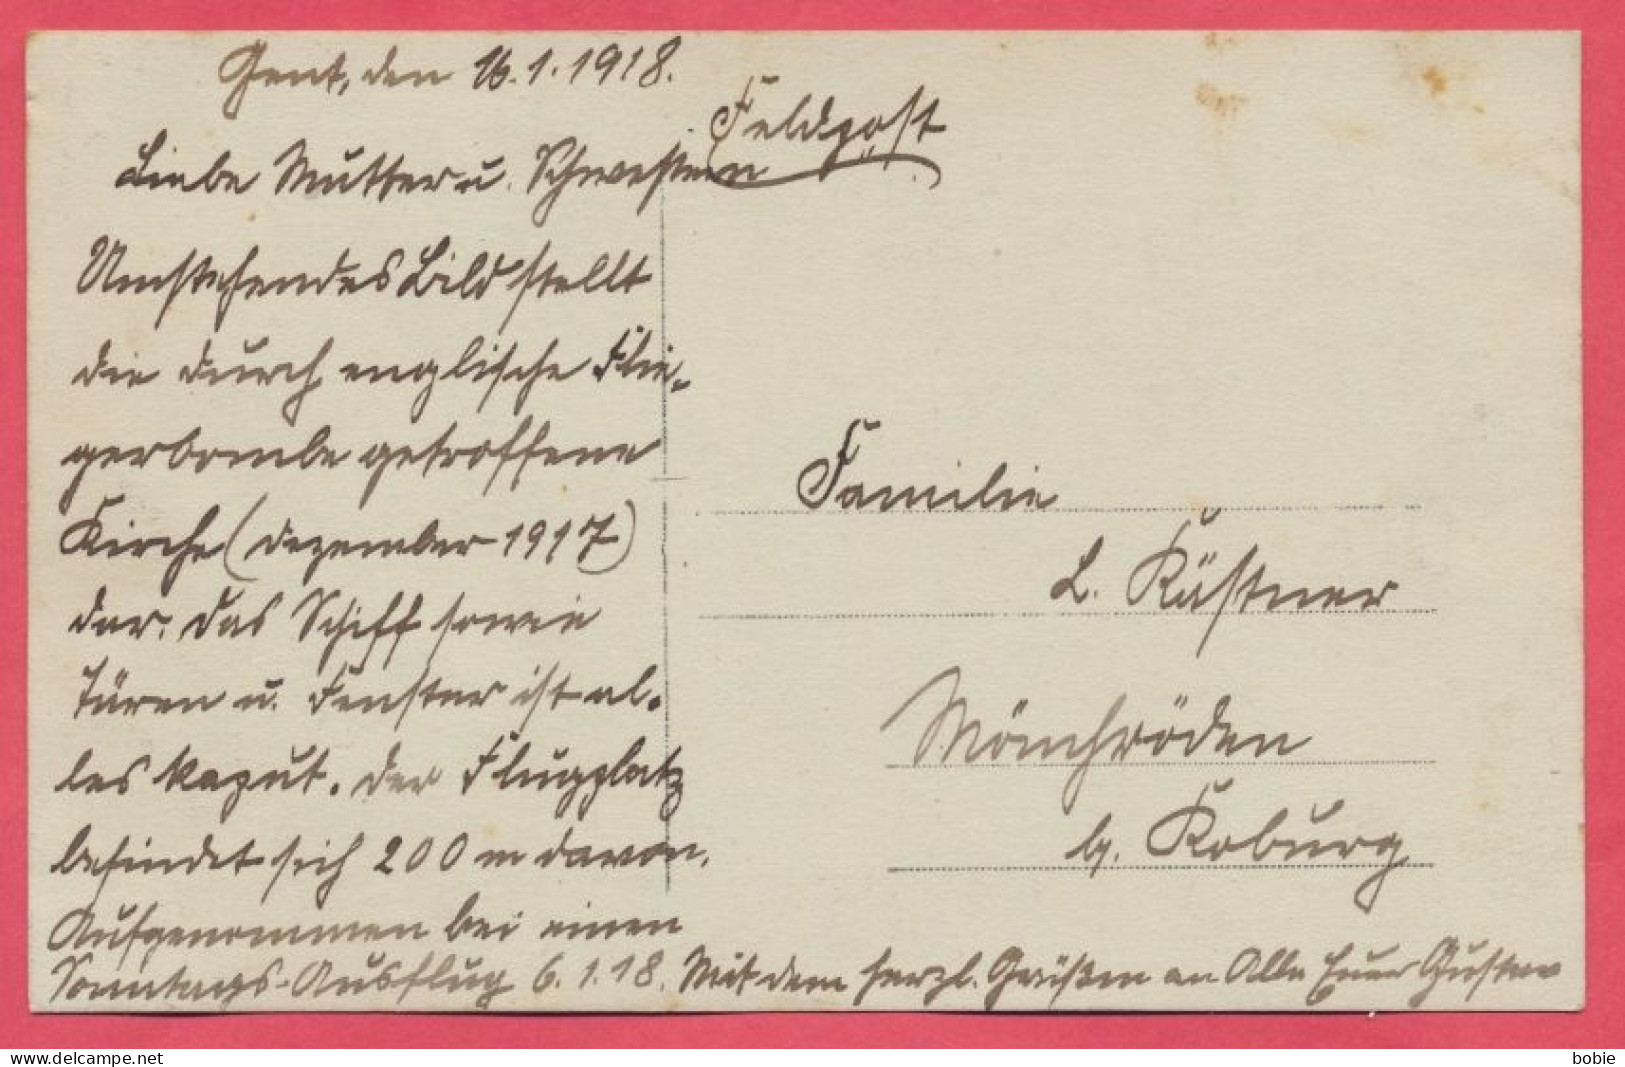 Gent, den 16.1.1918.
Feldpost
Liebe Mutter u. Schwestern
Umstehendes Bild stellt
die durch englische Flie-
gerbombe getroffene
Kirche (Dezember 1917)
dar. Das Schiff sowie
Türen u. Fenster ist al-
les kaput. Der Flugplatz
befindet sich 200 m davon.
Aufgenommen bei einen
Sonntags-Ausflug 6.1.18. Mit dem herzl. Grüßen an Alle Euer Gustav
Familie
L. Kästner
Mönchröden
b. Koburg
delcampe.net
bobie